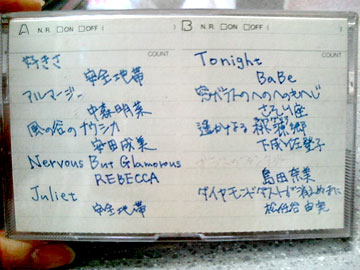 A N.R. □ON □OFF (
COUNT
好きさ
安全地帯
アルマージ
中森明菜
風の谷のナウシカ
安田成美
Nervous But Glamorous
REBECCA
Juliet
安全地帯
B N.R. □ON □OFF (
COUNT
Tonight
BaBe
窓ガラスのへのへのもへじ
さそり座
遥かなる
下成佐登子
島田奈美
ダイヤモンドダストが消えぬまに
松任谷由実